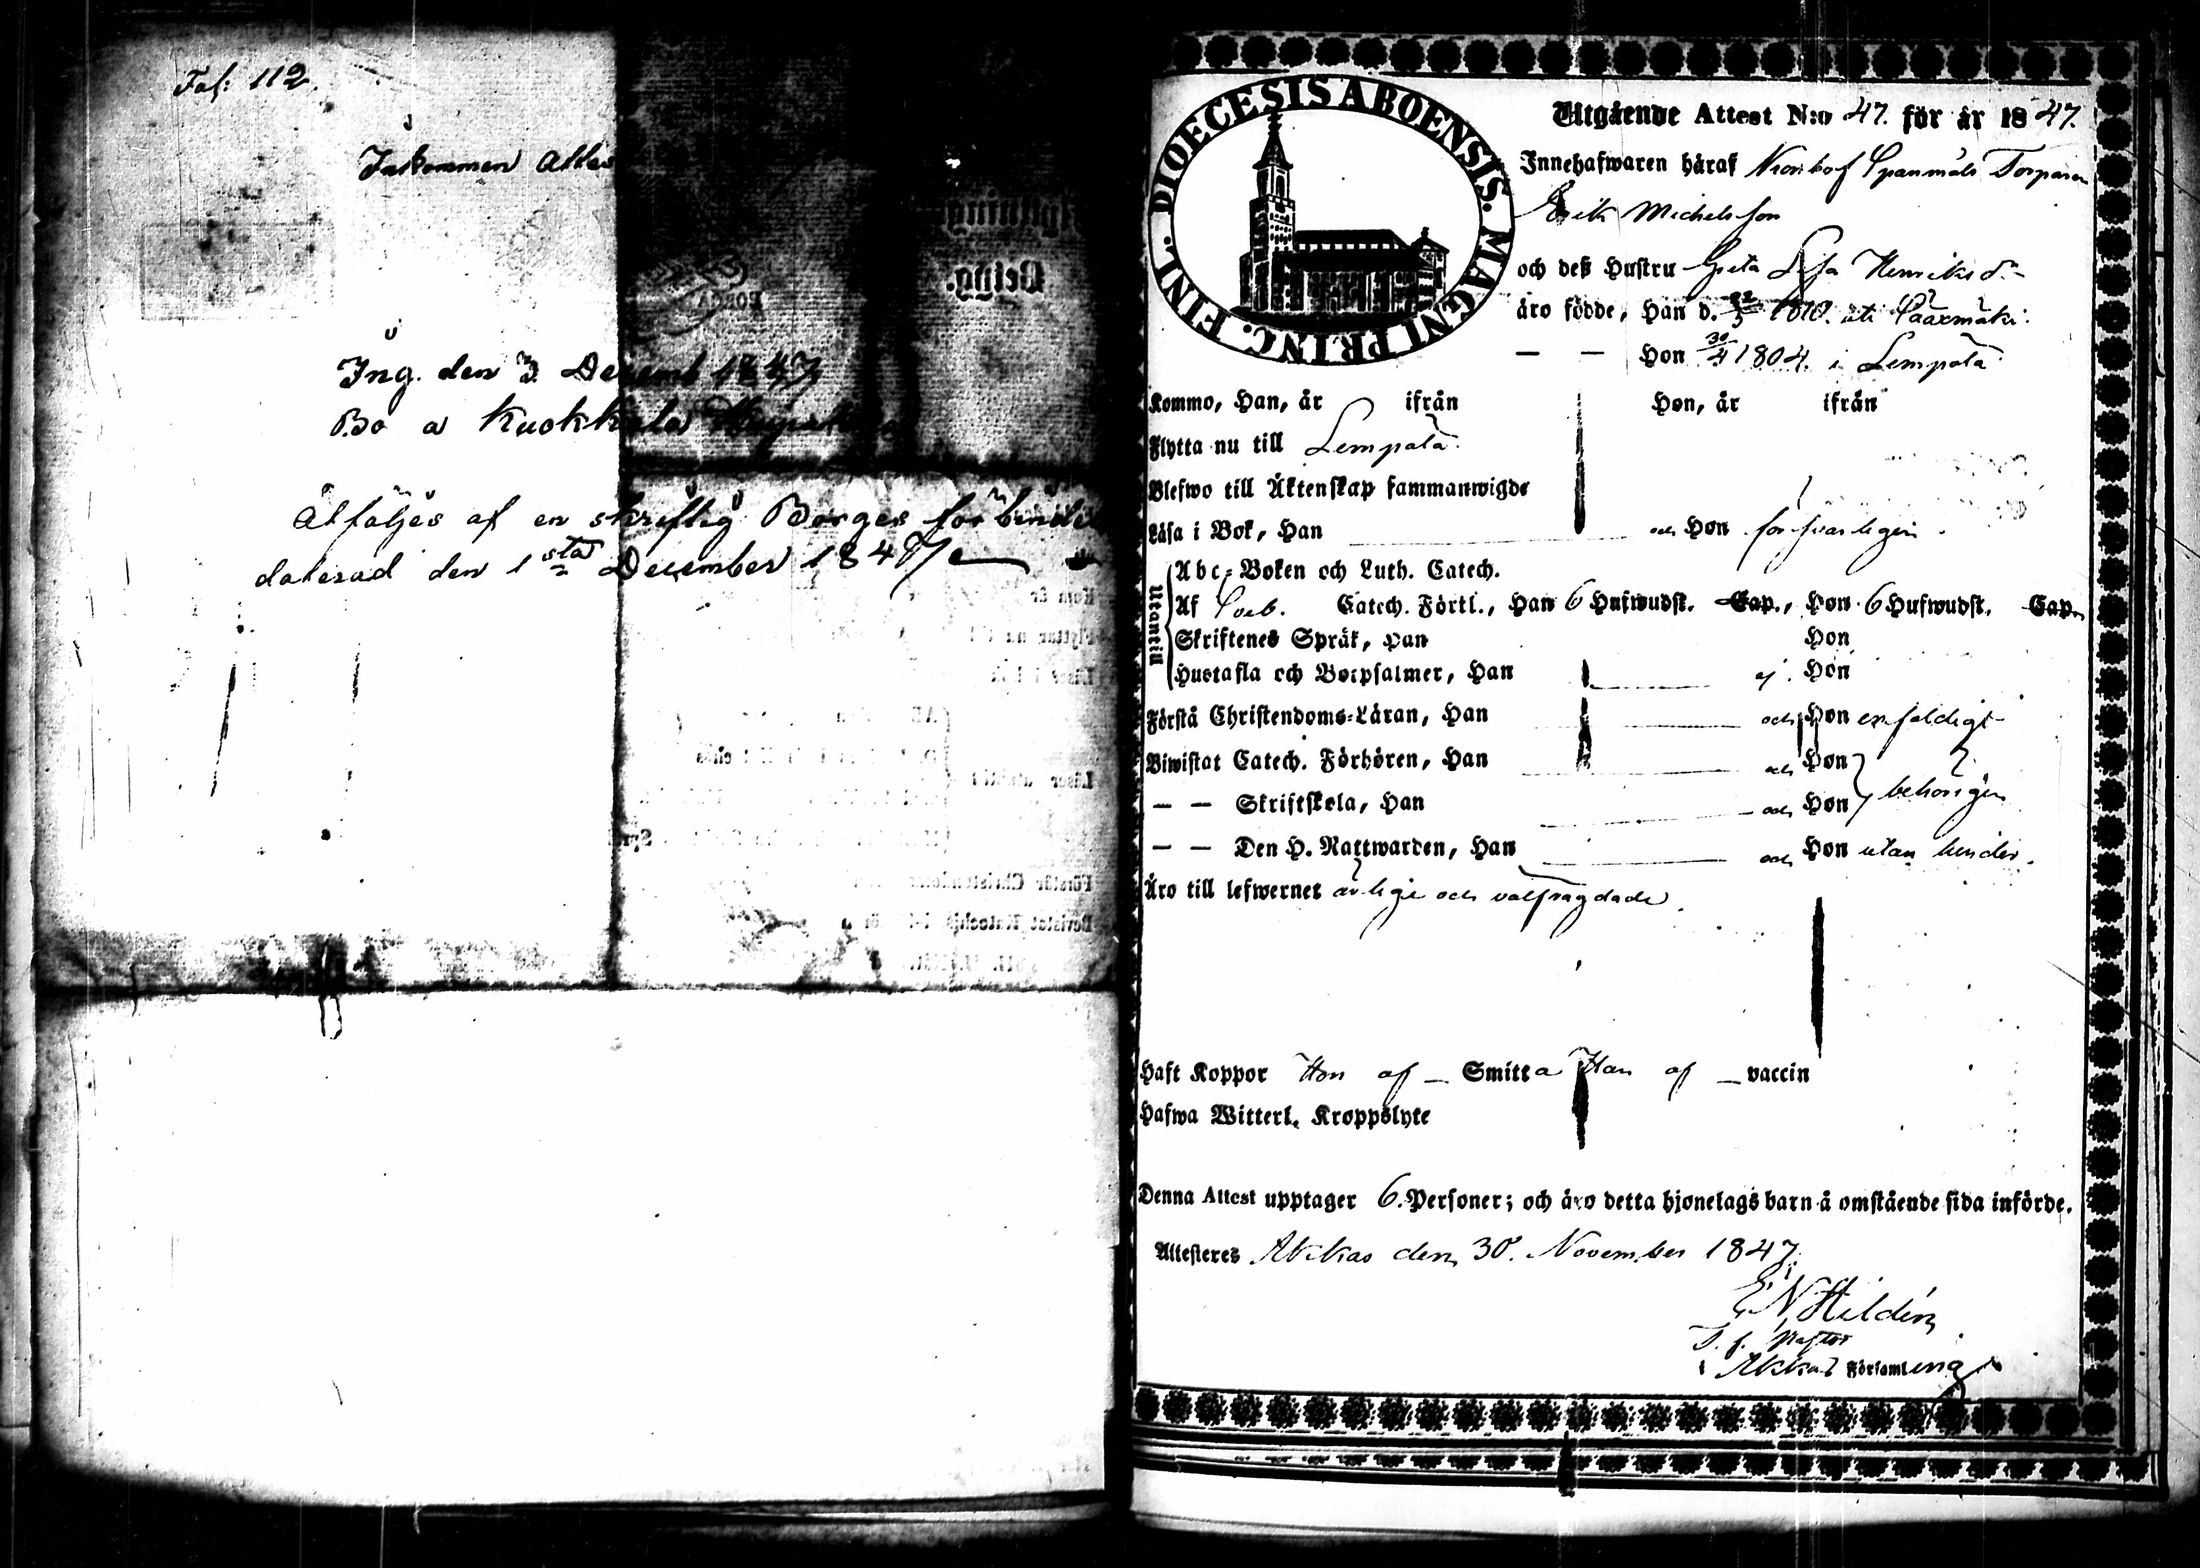 Fol: 112.
Inkommen Attes
Ing. den 3 Decemb 1847
Bo a Kuokkala
Åtföljes af en skriftlig Borges förbindel
daterad den 1sta December 1847
DIOECESIS ABOENSIS. MAGNI PRINC. FINL.
Utgående Attest N:o 47. för år 1847.
Innehafwaren häraf Spanmåls Torparen
Erik Michelsson
och deß Hustru Greta Lisa Henriksd:
äro födde, Han d. 22/3 1810. uti Sääxmäki.
— — Hon 30/4 1804. i Lempola
Kommo, Han, år ifrån Hon, år ifrån
Flytta nu till Lempola.
Blefwo till Äktenskap sammanwigde
Läsa i Bok, Han och Hon försvarligen.
Utantill
Abc-Boken och Luth. Catech.
Af Sveb. Catech. Förkl., Han 6 Hufwudst. Cap., Hon 6 Hufwudst. Cap.
Skriftenes Språk, Han Hon
Hustafla och Botpsalmer, Han ej. Hon
Förstå Christendoms-Läran, Han och Hon enfaldigt
Biwistat Catech. Förhören, Han och Hon
— — Skriftskola, Han och Hon behörigen
— — Den H. Nattwarden, Han och Hon utan hinder.
Äro till lefwernet ärlige och välfrägdade.
Haft Koppor Hon af — Smitta Han af — vaccin
Hafwa Witterl. Kroppslyte
Denna Attest upptager 6. Personer; och äro detta hjonelags barn å omstående sida införde.
Attesteres Akkas den 30. November 1847.
E N Hildén
T. f. Pastor
i Akkas Församling